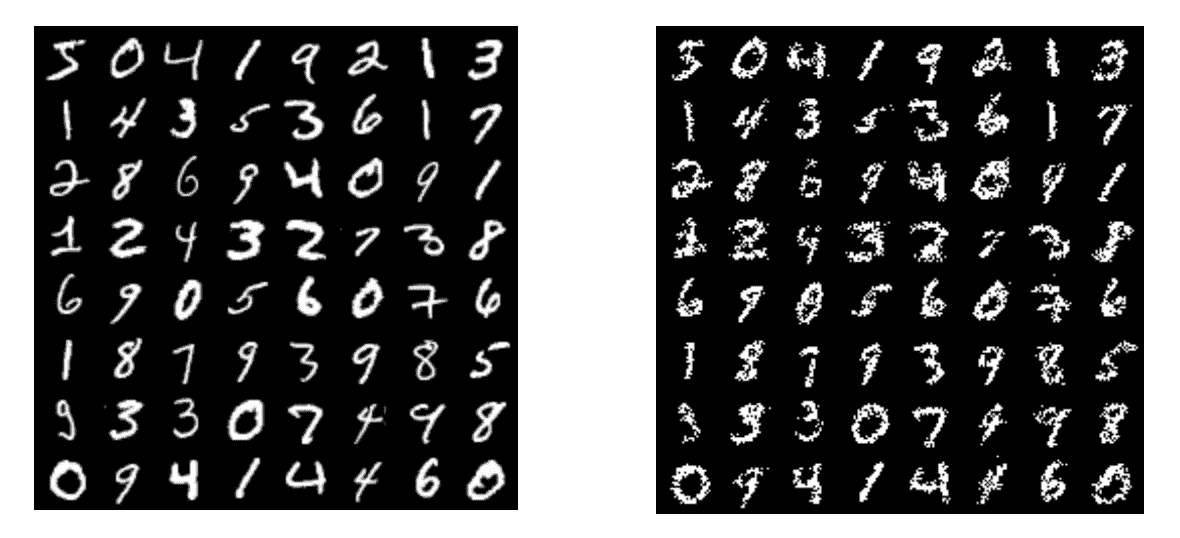 5 0 4 1 9 2 1 3
1 4 3 5 3 6 1 7
2 8 6 9 4 0 9 1
1 2 4 3 2 7 3 8
6 9 0 5 6 0 7 6
1 8 7 9 3 9 8 5
9 3 3 0 7 4 9 8
0 9 4 1 4 4 6 0
5 0 4 1 9 2 1 3
1 4 3 5 3 6 1 7
2 8 6 9 4 0 9 1
1 2 4 3 2 7 3 8
6 9 0 5 6 0 7 6
1 8 7 9 3 9 8 5
3 3 0 7 4 9 8
0 9 4 1 4 4 6 0